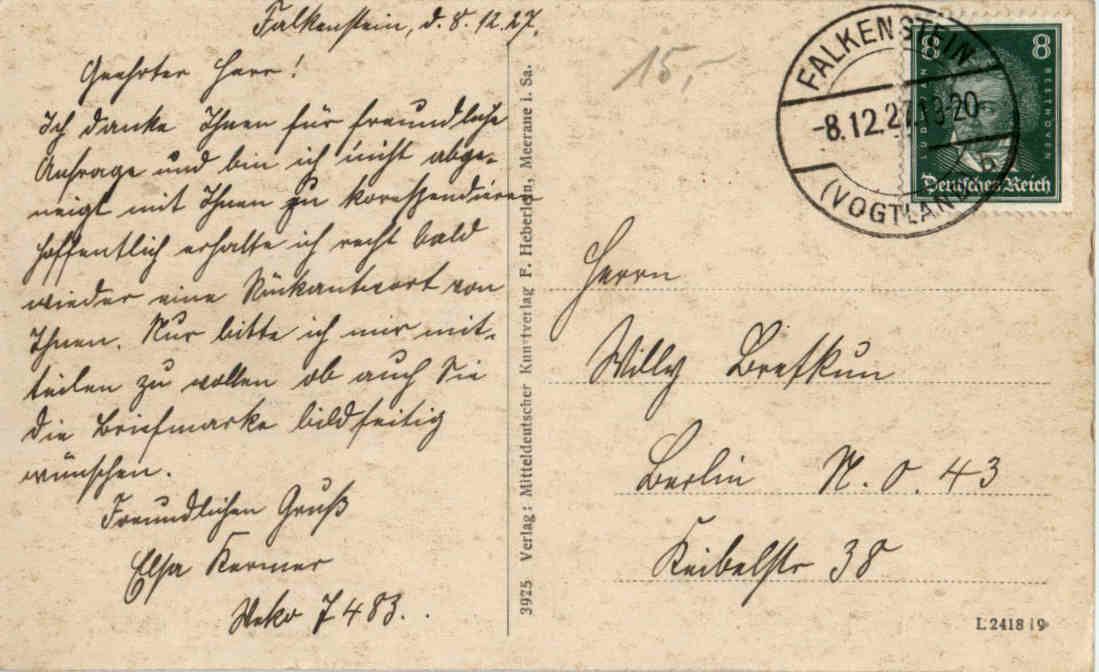 Falkenstein, d. 8.12.27.
Geehrter Herr!
Ich danke Ihnen für freundliche
Anfrage und bin ich nicht abge-
neigt mit Ihnen zu korespendieren
hoffentlich erhalte ich recht bald
wieder eine Rückantwort von
Ihnen. Nur bitte ich mir mit-
teilen zu wollen ob auch Sie
die Briefmarke bildseitig
wünschen.
Freundlichen Gruß
Elsa
7483.
3925 Verlag: Mitteldeutscher Kunstverlag F. Heberlein, Meerane i. Sa.
15,-
FALKENSTEIN
-8.12.27.19-20
(VOGTLAND) b
8 8
LUDWIG VAN BEETHOVEN
Deutsches Reich
Herrn
Willy
Berlin N.O. 43
Keibelstr 38
L 2418|9